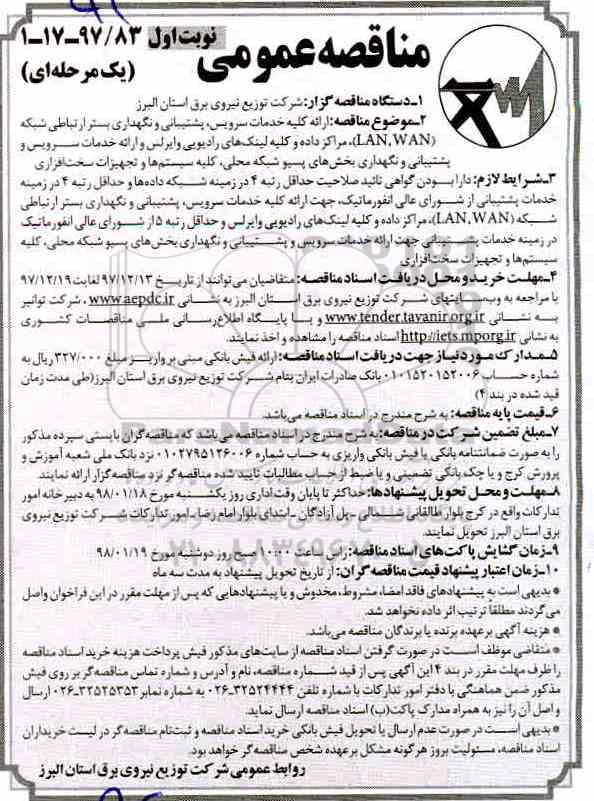 مناقصه عمومی
نوبت اول ۹۷/۸۳-۱۷-۱
(یک مرحله‌ای)
۱-دستگاه مناقصه گزار: شرکت توزیع نیروی برق استان البرز
۲-موضوع مناقصه: ارائه کلیه خدمات سرویس، پشتیبانی و نگهداری بستر ارتباطی شبکه
(LAN,WAN)، مراکز داده و کلیه لینک‌های رادیویی وایرلس و ارائه خدمات سرویس و
پشتیبانی و نگهداری بخش‌های پسیو شبکه محلی، کلیه سیستم‌ها و تجهیزات سخت‌افزاری
۳-شرایط لازم: دارا بودن گواهی تائید صلاحیت حداقل رتبه ۴ در زمینه شبکه داده‌ها و حداقل رتبه ۴ در زمینه
خدمات پشتیبانی از شورای عالی انفورماتیک، جهت ارائه کلیه خدمات سرویس، پشتیبانی و نگهداری بستر ارتباطی
شبکه (LAN,WAN)، مراکز داده و کلیه لینک‌های رادیویی وایرلس و حداقل رتبه ۵ از شورای عالی انفورماتیک
در زمینه خدمات پشتیبانی جهت ارائه خدمات سرویس و پشتیبانی و نگهداری بخش‌های پسیو شبکه محلی، کلیه
سیستم‌ها و تجهیزات سخت‌افزاری
۴-مهلت خرید و محل دریافت اسناد مناقصه: متقاضیان می‌توانند از تاریخ ۹۷/۱۲/۱۳ لغایت ۹۷/۱۲/۱۹
با مراجعه به وب‌سایتهای شرکت توزیع نیروی برق استان البرز به نشانی www.aepdc.ir ، شرکت توانیر
به نشانی www.tender.tavanir.org.ir و یا پایگاه اطلاع‌رسانی ملی مناقصات کشوری
به نشانی http://iets.mporg.ir اسناد مناقصه را مشاهده و اخذ نمایند.
۵-مدارک مورد نیاز جهت دریافت اسناد مناقصه: ارائه فیش بانکی مبنی بر واریز مبلغ ۳۲۷/۰۰۰ ریال به
شماره حساب ۰۱۰۱۵۲۰۱۵۲۰۰۶ بانک صادرات ایران بنام شرکت توزیع نیروی برق استان البرز (طی مدت زمان
قید شده در بند ۴)
۶-قیمت پایه مناقصه: به شرح مندرج در اسناد مناقصه می‌باشد.
۷-مبلغ تضمین شرکت در مناقصه: به شرح مندرج در اسناد مناقصه می‌باشد که مناقصه‌گران بایستی سپرده مذکور
را به صورت ضمانتنامه بانکی یا فیش بانکی واریزی به حساب شماره ۰۱۰۲۷۹۵۱۲۶۰۰۶ نزد بانک ملی شعبه آموزش و
پرورش کرج و یا چک بانکی تضمینی و یا ضبط از حساب مطالبات تایید شده مناقصه‌گر نزد مناقصه‌گزار ارائه نمایند.
۸-مهلت و محل تحویل پیشنهادها: حداکثر تا پایان وقت اداری روز یکشنبه مورخ ۹۸/۰۱/۱۸ به دبیرخانه امور
تدارکات واقع در کرج بلوار طالقانی شمالی-پل آزادگان-ابتدای بلوار امام رضا-امور تدارکات شرکت توزیع نیروی
برق استان البرز تحویل نمایند.
۹-زمان گشایش پاکت‌های اسناد مناقصه: راس ساعت ۱۰:۰۰ صبح روز دوشنبه مورخ ۹۸/۰۱/۱۹
۱۰-زمان اعتبار پیشنهاد قیمت مناقصه‌گران: از تاریخ تحویل پیشنهاد به مدت سه ماه
* بدیهی است به پیشنهادهای فاقد امضاء، مشروط، مخدوش و یا پیشنهادهایی که پس از مهلت مقرر در این فراخوان واصل
می‌گردند مطلقا ترتیب اثر داده نخواهد شد.
* هزینه آگهی برعهده برنده یا برندگان مناقصه می‌باشد.
* متقاضی موظف است در صورت گرفتن اسناد مناقصه از سایت‌های مذکور فیش پرداخت هزینه خرید اسناد مناقصه
را ظرف مهلت مقرر در بند ۴ این آگهی پس از قید شماره مناقصه، نام و آدرس و شماره تماس مناقصه‌گر بر روی فیش
مذکور ضمن هماهنگی با دفتر امور تدارکات با شماره تلفن ۳۲۵۲۴۴۴۴-۰۲۶ به شماره نمابر ۳۲۵۲۵۳۵۳-۰۲۶ ارسال
و اصل آن را نیز به همراه مدارک پاکت (ب) اسناد مناقصه ارسال نماید.
* بدیهی است در صورت عدم ارسال یا تحویل فیش بانکی خرید اسناد مناقصه و ثبت‌نام مناقصه‌گر در لیست خریداران
اسناد مناقصه، مسئولیت بروز هرگونه مشکل برعهده شخص مناقصه‌گر خواهد بود.
روابط عمومی شرکت توزیع نیروی برق استان البرز